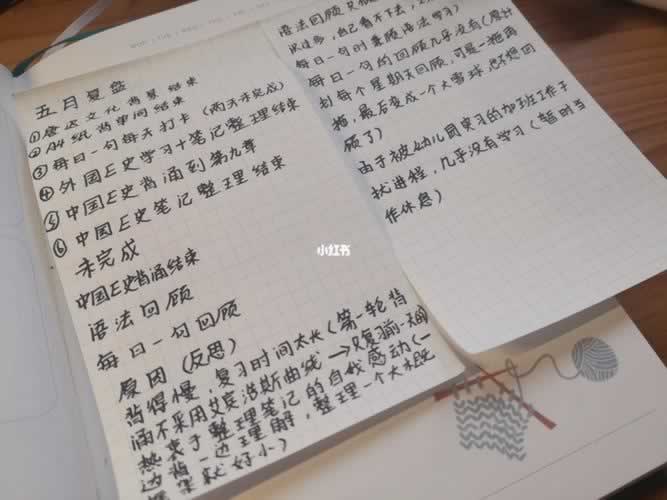 五月复盘
①唐达文化背景结束
②A4纸背单词结束
③每日一句每天打卡（两天未完成）
④外国E史学习＋笔记整理结束
⑤中国E史背诵到第九章
⑥中国E史笔记整理结束
未完成
中国E史背诵结束
语法回顾
每日一句回顾
复因（反思）
背得慢，复习时间太长（第一轮背
诵不采用艾宾浩斯曲线→只复习前一天的
热衷于整理笔记的自我感动（一
边背一边理解，整理一个大概
框架就好）
语法回顾
自己看不下去，
每日一句时兼顾语法学习）
每日一句的回顾几乎没有（原计
划每个星期天回顾，可是一拖再
拖，最后变成一个大雪球，也不想回
顾了）
由于被幼儿园实习的加班工作干
扰进程，几乎没有学习（暂时当
作休息）
小红书